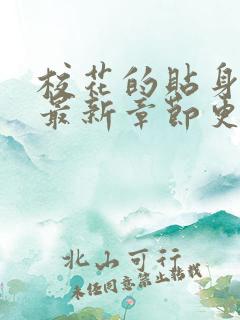 校花的貼身
最新章節更
北山可行
未经同意禁止转载